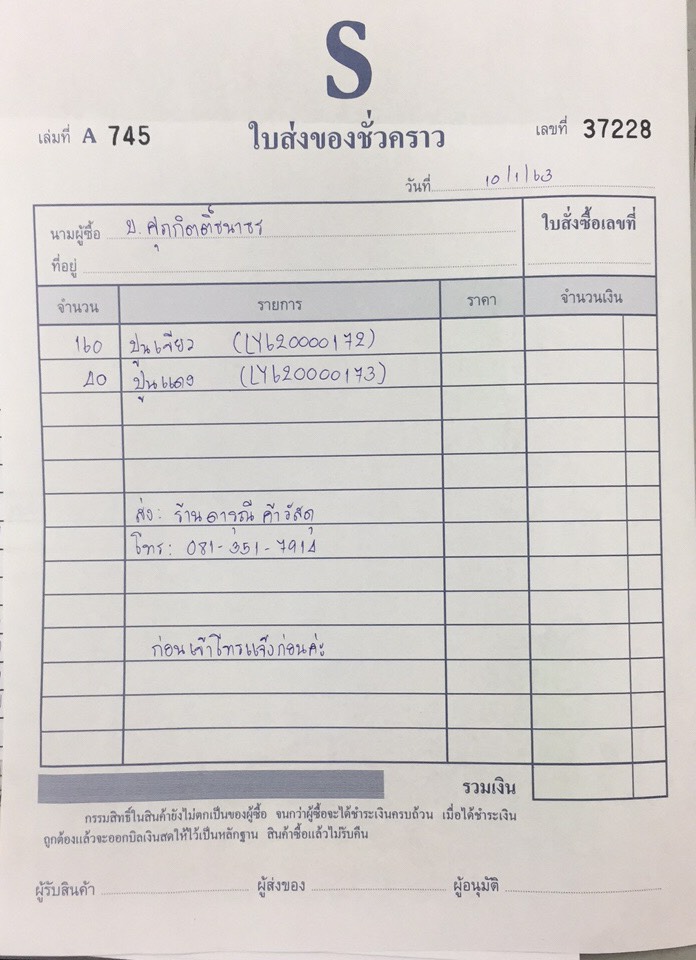 S
เล่มที่ A 745
ใบส่งของชั่วคราว
เลขที่ 37228
วันที่ 10/1/63
นามผู้ซื้อ บ. ศุภกิตติ์ธนาธร
ใบสั่งซื้อเลขที่
ที่อยู่
จำนวน รายการ ราคา จำนวนเงิน
160 ปูนเขียว (LY620000172)
40 ปูนแดง (LY620000173)
ส่ง: ร้านดารุณี ค้าวัสดุ
โทร: 081-351-7914
ก่อนเข้าโทรแจ้งก่อนค่ะ
รวมเงิน
กรรมสิทธิ์ในสินค้ายังไม่ตกเป็นของผู้ซื้อ จนกว่าผู้ซื้อจะได้ชำระเงินครบถ้วน เมื่อได้ชำระเงิน
ถูกต้องแล้วจะออกบิลเงินสดให้ไว้เป็นหลักฐาน สินค้าซื้อแล้วไม่รับคืน
ผู้รับสินค้า ผู้ส่งของ ผู้อนุมัติ